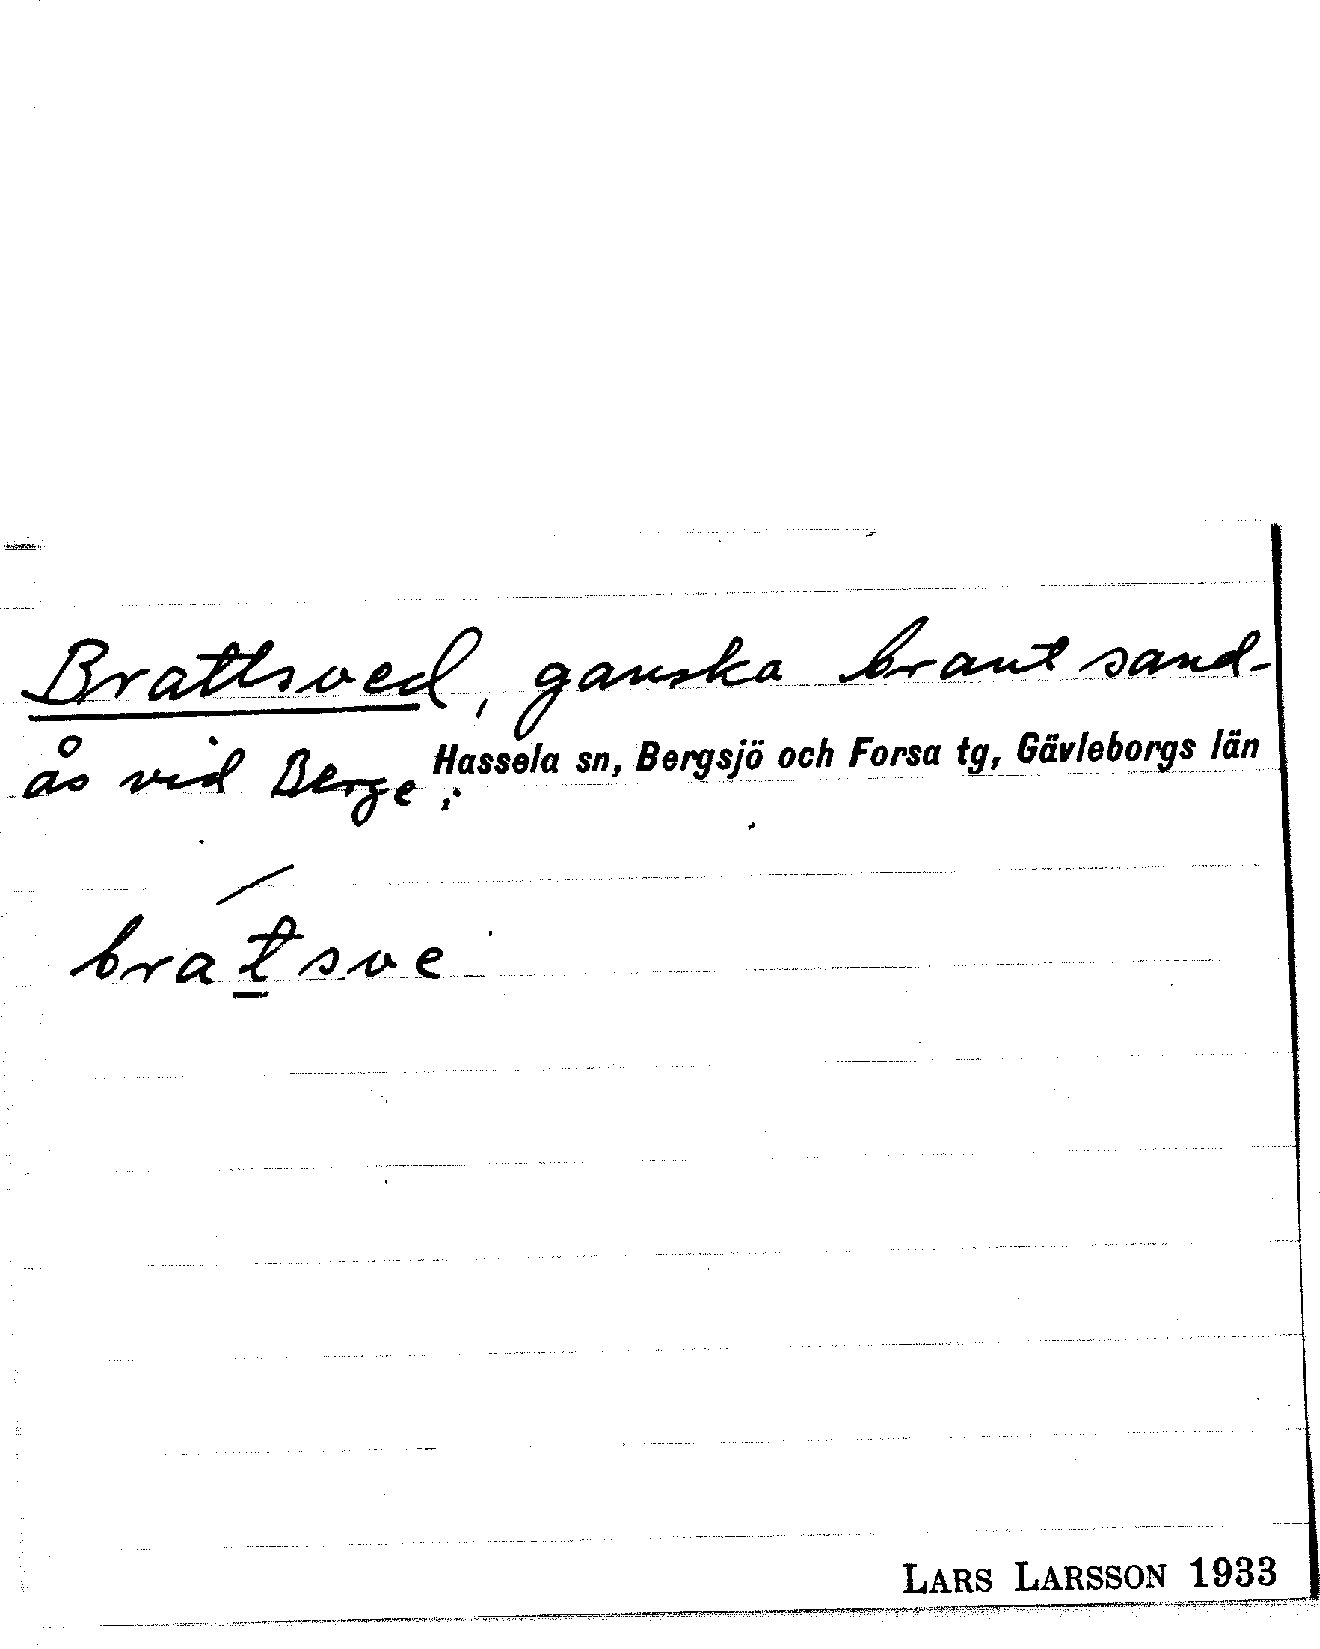 Brattsved, ganska brant sand-
ås vid Berge; Hassela sn, Bergsjö och Forsa tg, Gävleborgs län
bratsve
LARS LARSSON 1933